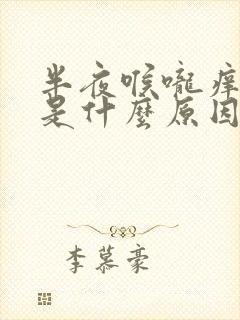 半夜喉嚨痒
是什麼原因
李慕豪